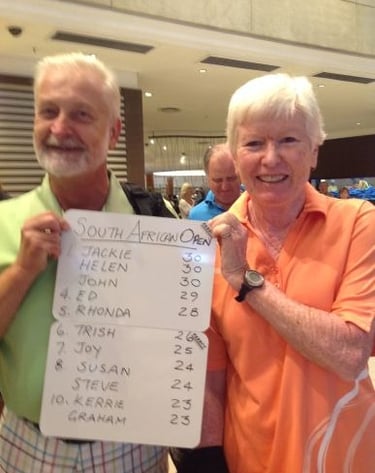 SOUTH AFRICAN OPEN
1 JACKIE 30
HELEN 30
JOHN 30
4. ED 29
5. RHONDA 28
6. TRISH 26
7. JOY 25
8 SUSAN 24
STEVE 24
10. KERRIE 23
GRAHAM 23